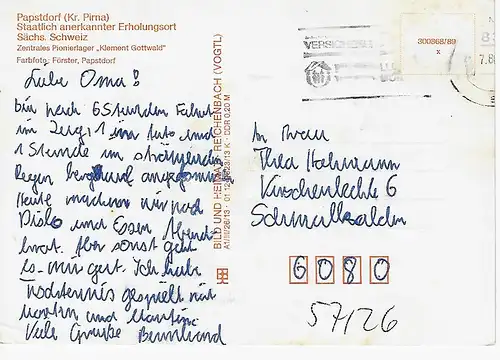 Papstdorf (Kr. Pirna)
Staatlich anerkannter Erholungsort
Sächs. Schweiz
Zentrales Pionierlager „Klement Gottwald"
Farbfoto: Förster, Papstdorf
Liebe Oma!
bin nach 6 Stunden Fahrt
im Zug, 1 im Auto und
1 Stunde im strömenden
Regen bergauf angekommen
Heute machen wir noch
Disko und Essen Abend
brot. Aber sonst geht
es mir gut. Ich habe
Tischtennis gespielt mit
und
Viele Grüße Bernhard
BILD UND HEIMAT REICHENBACH (VOGTL)
A1/III/26/13 K · DDR 0,20 M
VERSICHERN
300868/89
x
7.8
An Frau
Thea
Kirschenlechte 6
Schmalkalden
6080
57/126